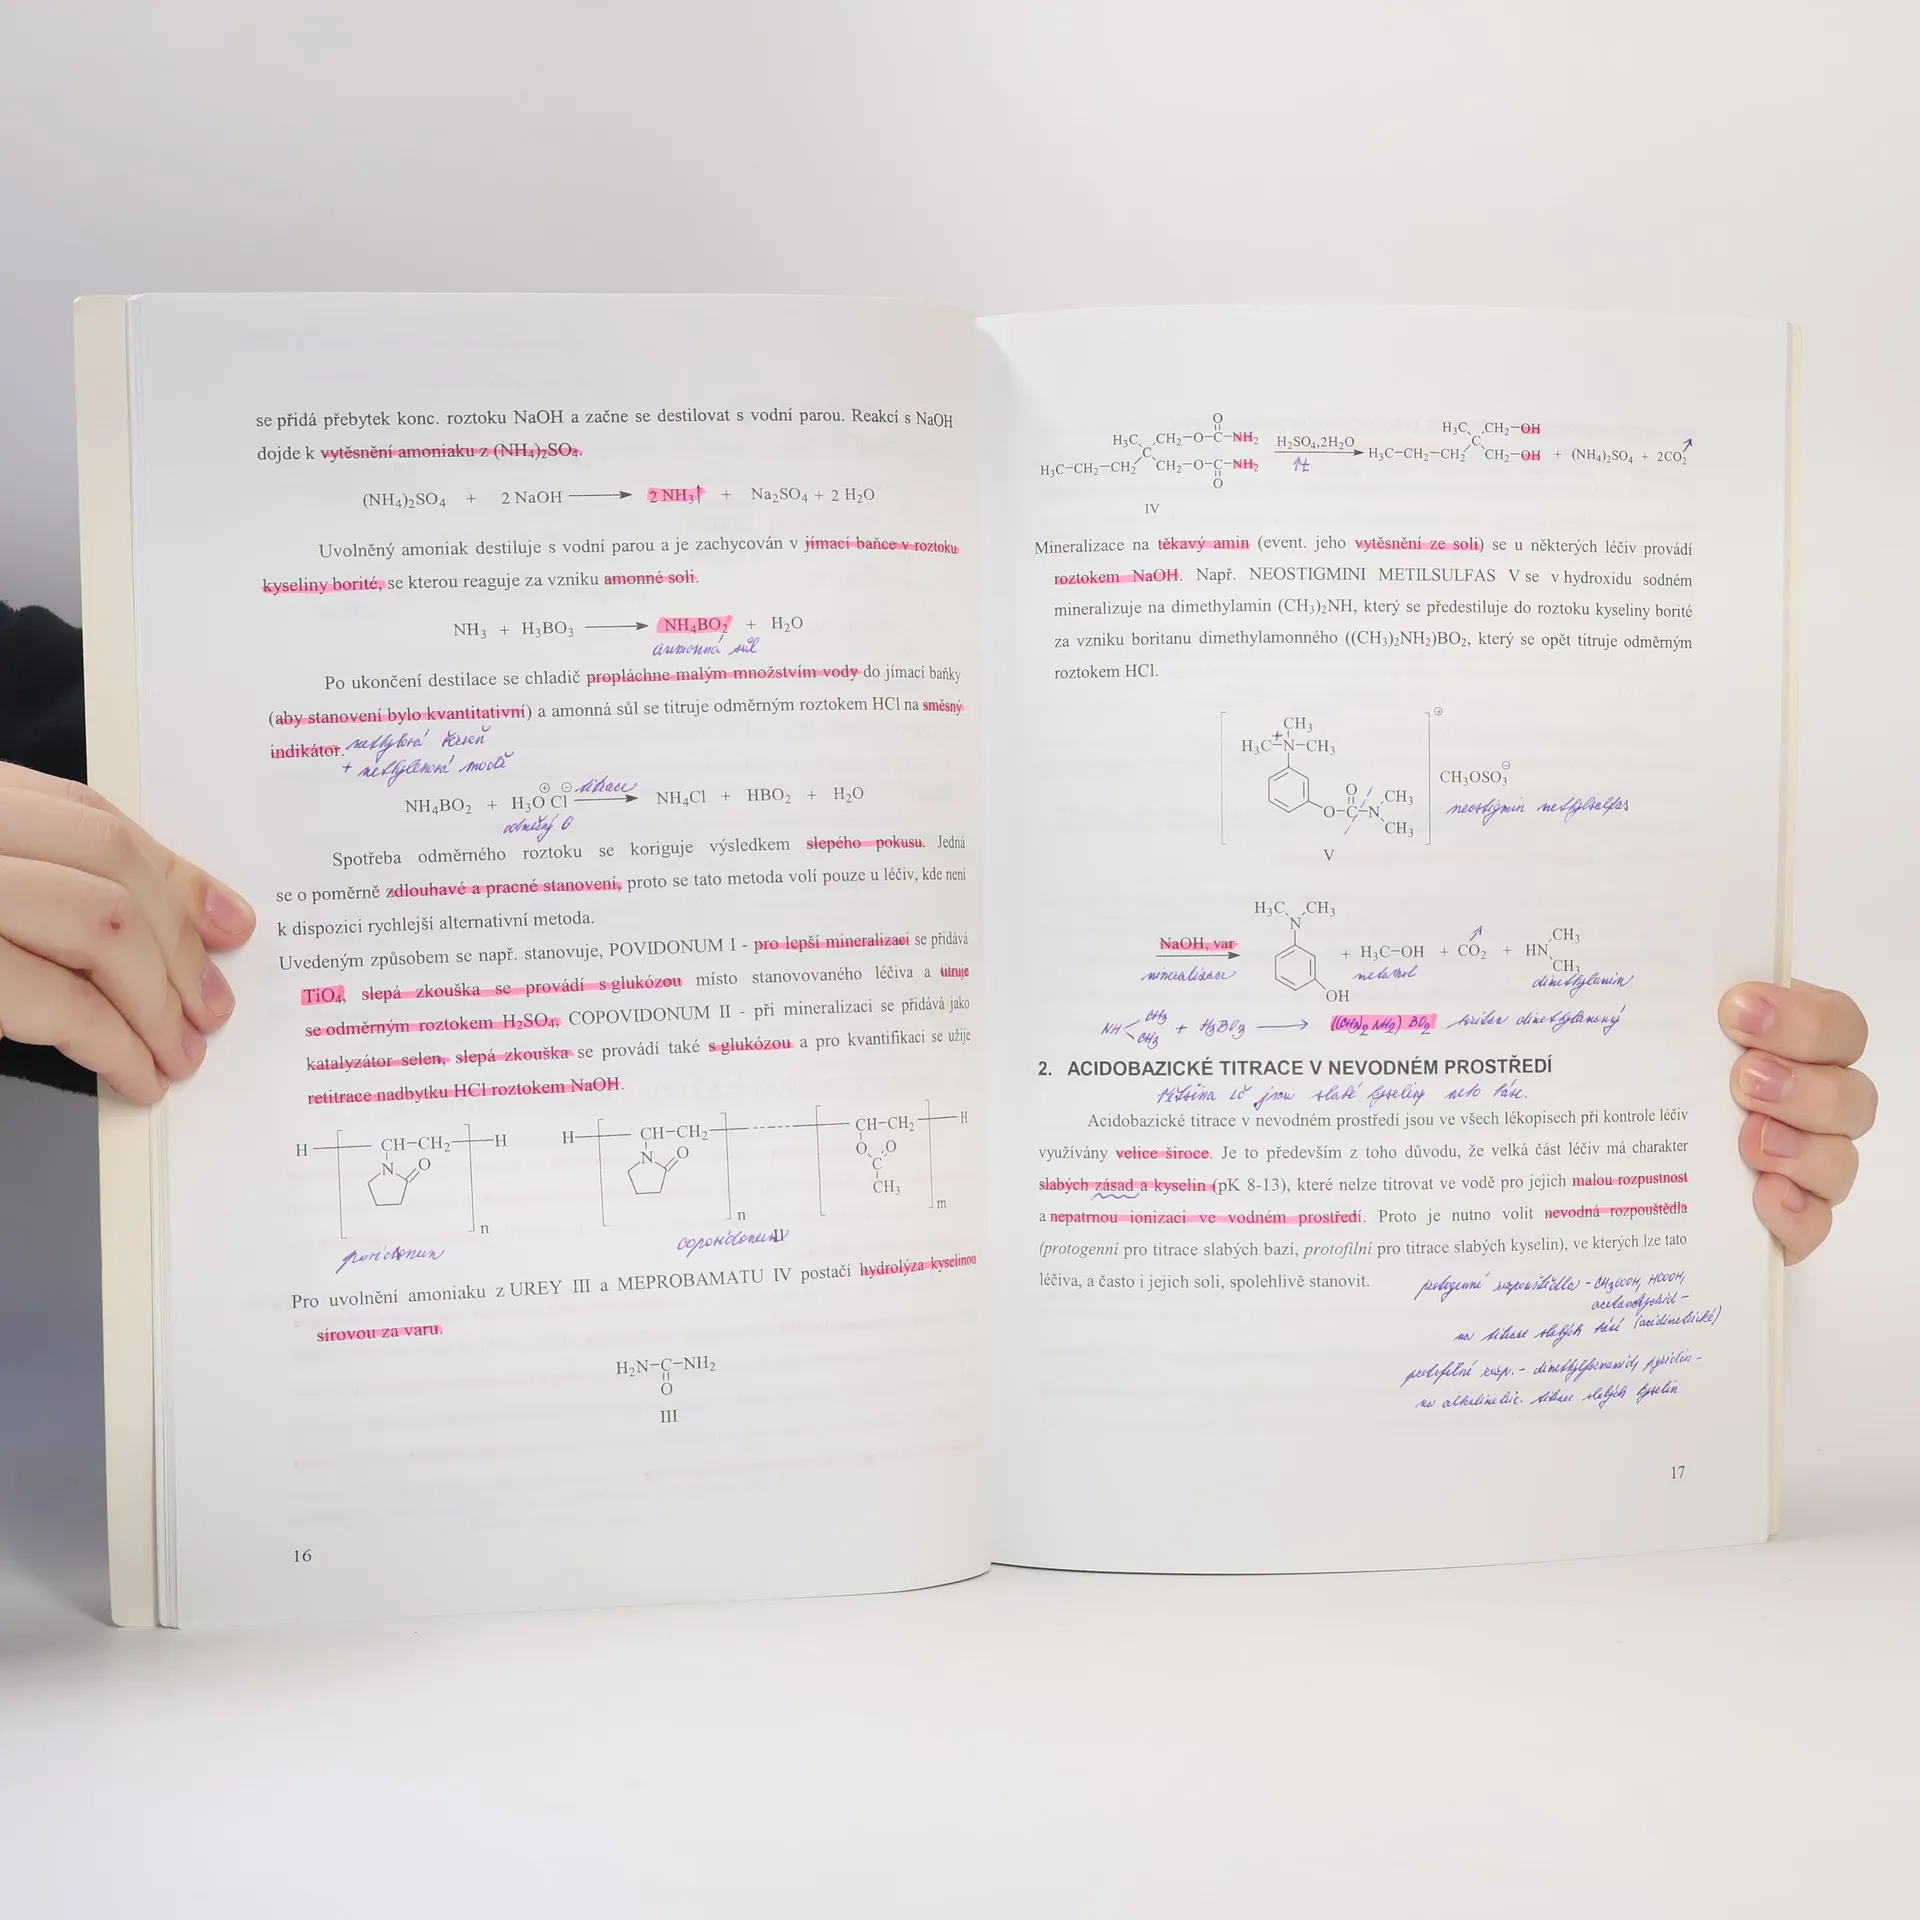 se přidá přebytek konc. roztoku NaOH a začne se destilovat s vodní parou. Reakcí s NaOH
dojde k vytěsnění amoniaku z (NH₄)₂SO₄.
(NH₄)₂SO₄ + 2 NaOH ⟶ 2 NH₃↑ + Na₂SO₄ + 2 H₂O
Uvolněný amoniak destiluje s vodní parou a je zachycován v jímací baňce v roztoku
kyseliny borité, se kterou reaguje za vzniku amonné soli.
NH₃ + H₃BO₃ ⟶ NH₄BO₂ + H₂O
amonná sůl
Po ukončení destilace se chladič propláchne malým množstvím vody do jímací baňky
(aby stanovení bylo kvantitativní) a amonná sůl se titruje odměrným roztokem HCl na směsný
indikátor. methylová červeň
+ methylenová modř
NH₄BO₂ + H₃O⊕ Cl⊖ titrace ⟶ NH₄Cl + HBO₂ + H₂O
odměrný
Spotřeba odměrného roztoku se koriguje výsledkem slepého pokusu. Jedná
se o poměrně zdlouhavé a pracné stanovení, proto se tato metoda volí pouze u léčiv, kde není
k dispozici rychlejší alternativní metoda.
Uvedeným způsobem se např. stanovuje, POVIDONUM I - pro lepší mineralizaci se přidává
TiO₄, slepá zkouška se provádí s glukózou místo stanovovaného léčiva a titruje
se odměrným roztokem H₂SO₄, COPOVIDONUM II - při mineralizaci se přidává jako
katalyzátor selen, slepá zkouška se provádí také s glukózou a pro kvantifikaci se užije
retitrace nadbytku HCl roztokem NaOH.
H CH-CH₂ H H CH-CH₂ CH-CH₂ H
N O N O O O
C
CH₃
n n m
povidonum copovidonum II
Pro uvolnění amoniaku z UREY III a MEPROBAMATU IV postačí hydrolýza kyselinou
sírovou za varu.
H₂N-C-NH₂
O
III
16
O
H₃C CH₂-O-C-NH₂ H₂SO₄,2H₂O H₃C CH₂-OH
C C
H₃C-CH₂-CH₂ CH₂-O-C-NH₂ H₃C-CH₂-CH₂ CH₂-OH + (NH₄)₂SO₄ + 2CO₂↑
O
IV
Mineralizace na těkavý amin (event. jeho vytěsnění ze soli) se u některých léčiv provádí
roztokem NaOH. Např. NEOSTIGMINI METILSULFAS V se v hydroxidu sodném
mineralizuje na dimethylamin (CH₃)₂NH, který se předestiluje do roztoku kyseliny borité
za vzniku boritanu dimethylamonného ((CH₃)₂NH₂)BO₂, který se opět titruje odměrným
roztokem HCl.
⊕
CH₃
H₃C-N-CH₃
+
CH₃OSO₃⊖
O CH₃
O-C-N
CH₃
neostigmin methylsulfas
V
H₃C CH₃
N
NaOH, var + H₃C-OH + CO₂↑ + HN CH₃ CH₃
mineralizace metanol dimethylamin
OH
NH CH₃ CH₃ + H₃BO₃ ⟶ ((CH₃)₂NH₂)BO₂ boritan dimethylamonný
2. ACIDOBAZICKÉ TITRACE V NEVODNÉM PROSTŘEDÍ
většina LČ jsou slabé kyseliny nebo báze.
Acidobazické titrace v nevodném prostředí jsou ve všech lékopisech při kontrole léčiv
využívány velice široce. Je to především z toho důvodu, že velká část léčiv má charakter
slabých zásad a kyselin (pK 8-13), které nelze titrovat ve vodě pro jejich malou rozpustnost
a nepatrnou ionizaci ve vodném prostředí. Proto je nutno volit nevodná rozpouštědla
(protogenní pro titrace slabých bazí, protofilní pro titrace slabých kyselin), ve kterých lze tato
léčiva, a často i jejich soli, spolehlivě stanovit.
protogenní rozpouštědla - CH₃COOH, HCOOH,
acetanhydrid -
na titrace slabých bází (acidimetrické)
protofilní rozp. - dimethylformamid, pyridin -
na alkalimetric. titrace slabých kyselin
17